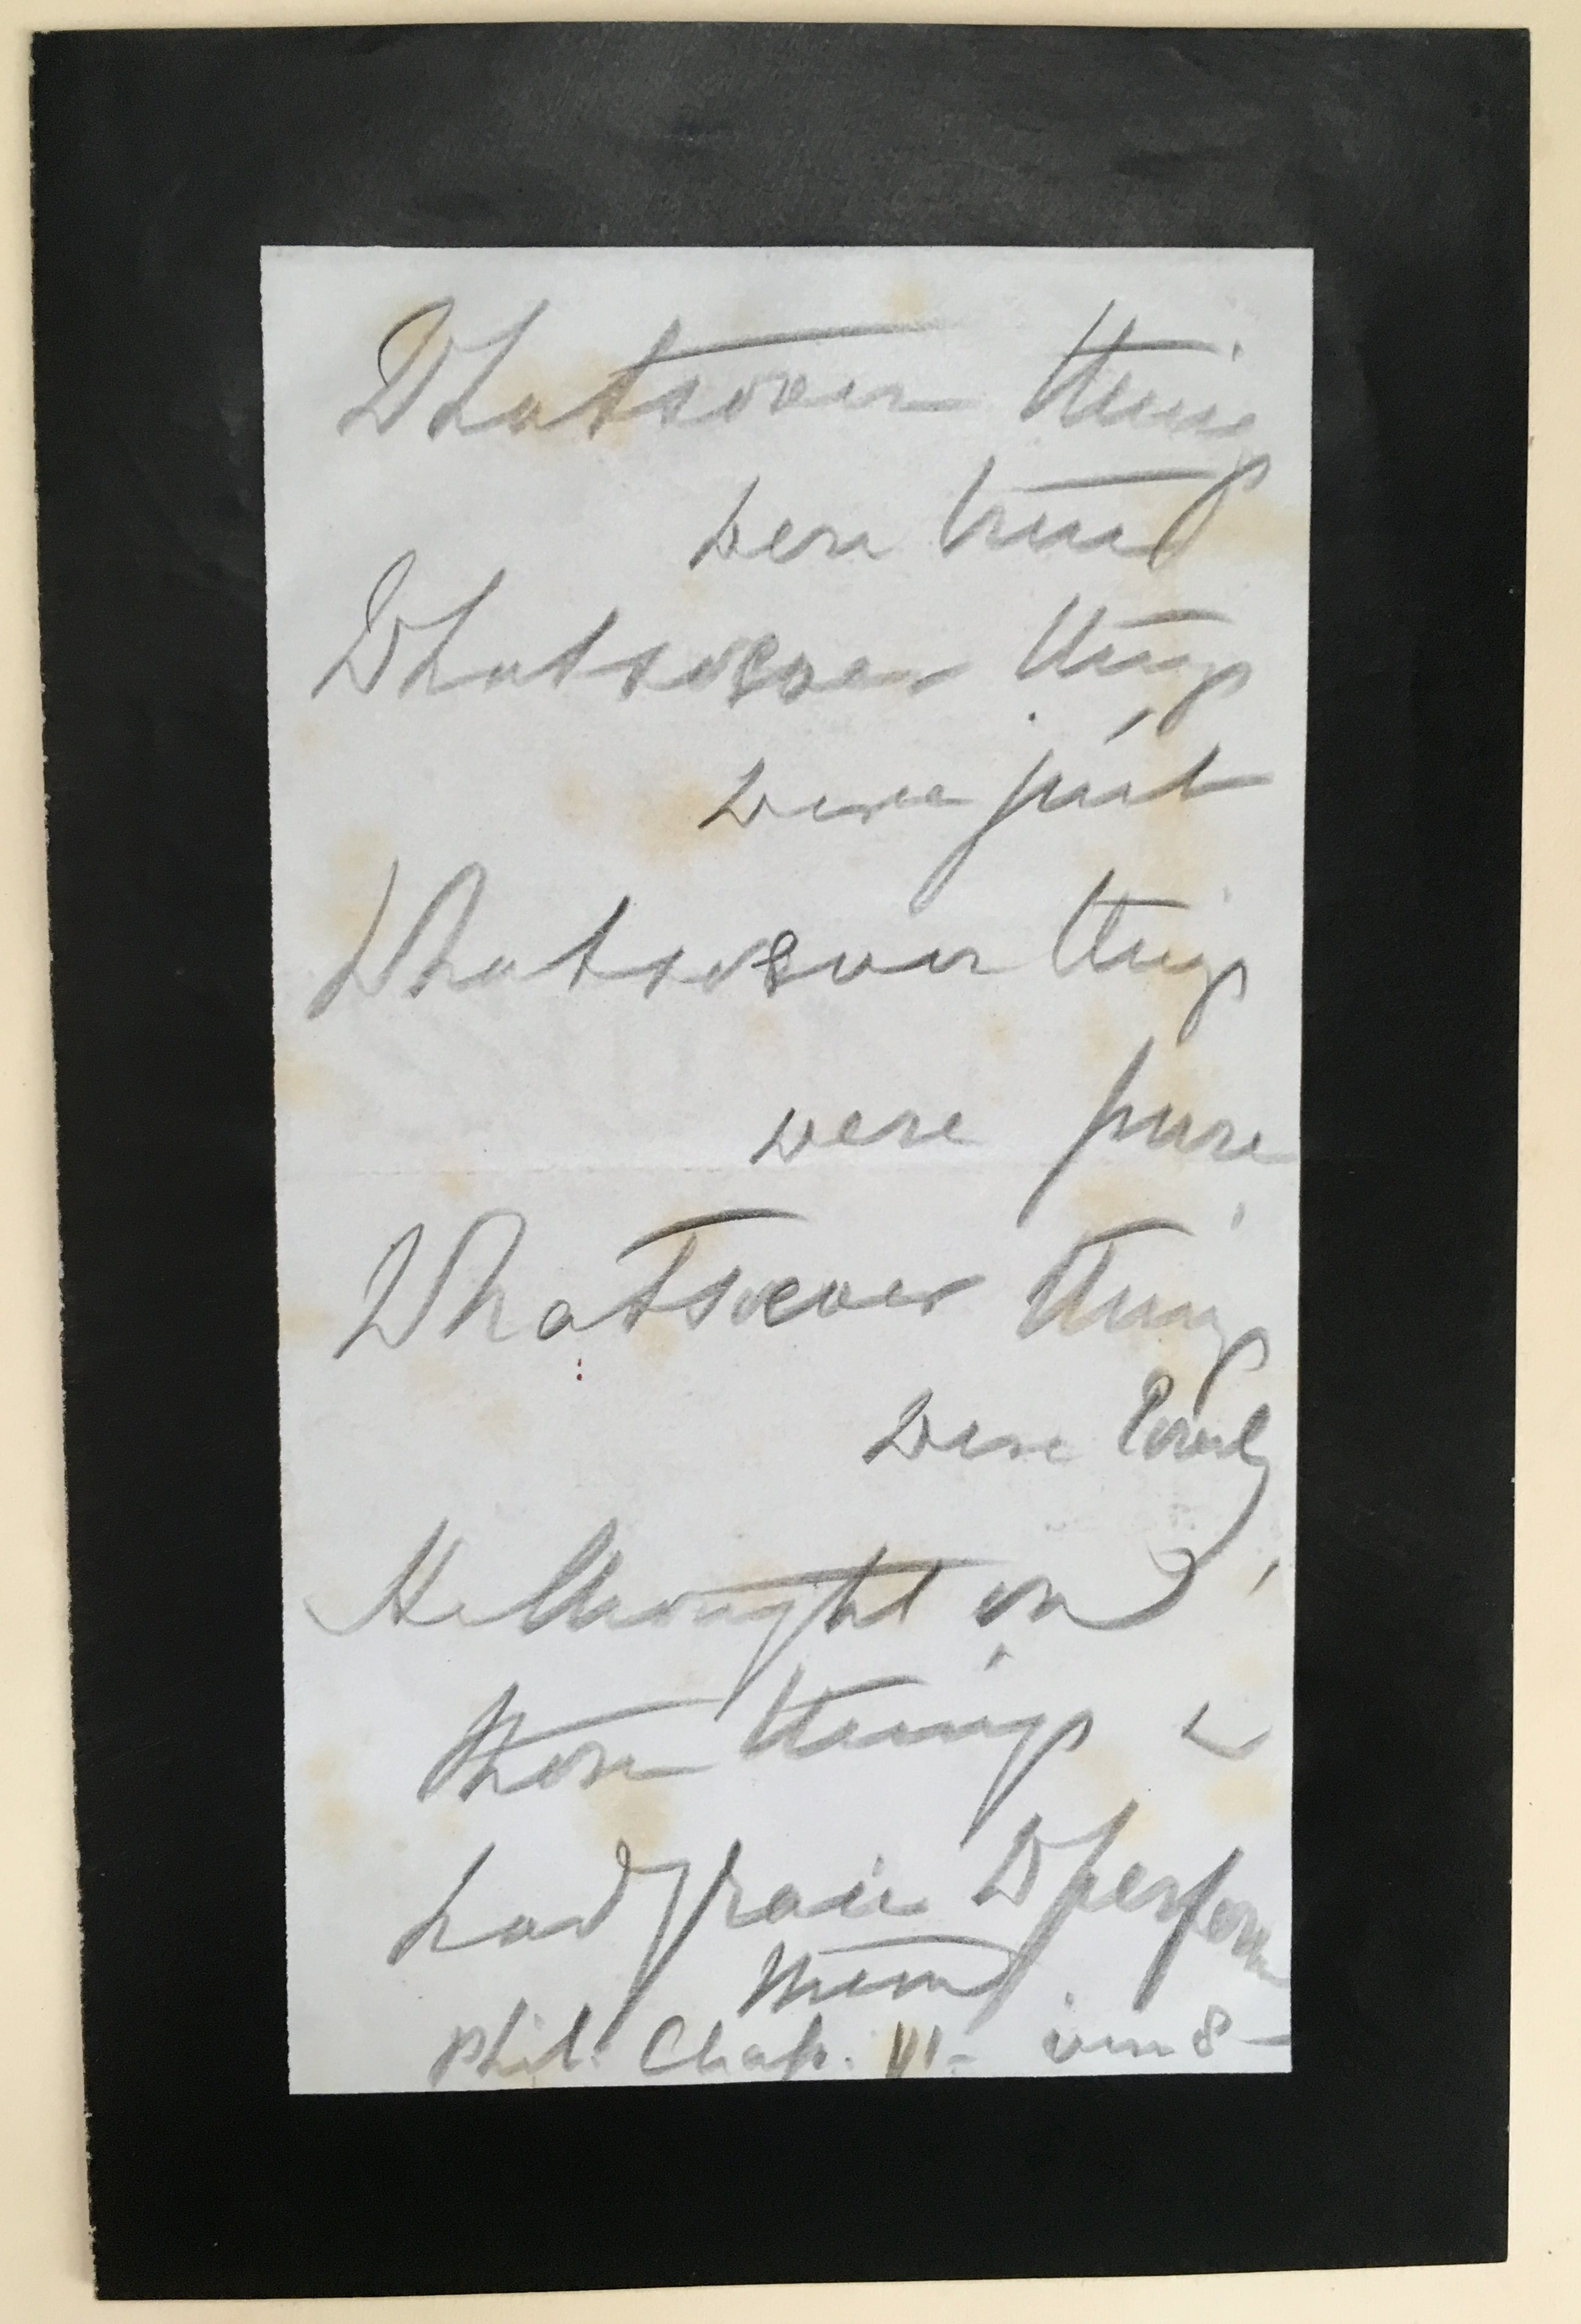 Whatsoever things
were true
Whatsoever things
were just
Whatsoever things
were pure
Whatsoever things
were lovely
He thought on
these things &
had grace to perform
them
Phil. Chap. VI - ver 8 -